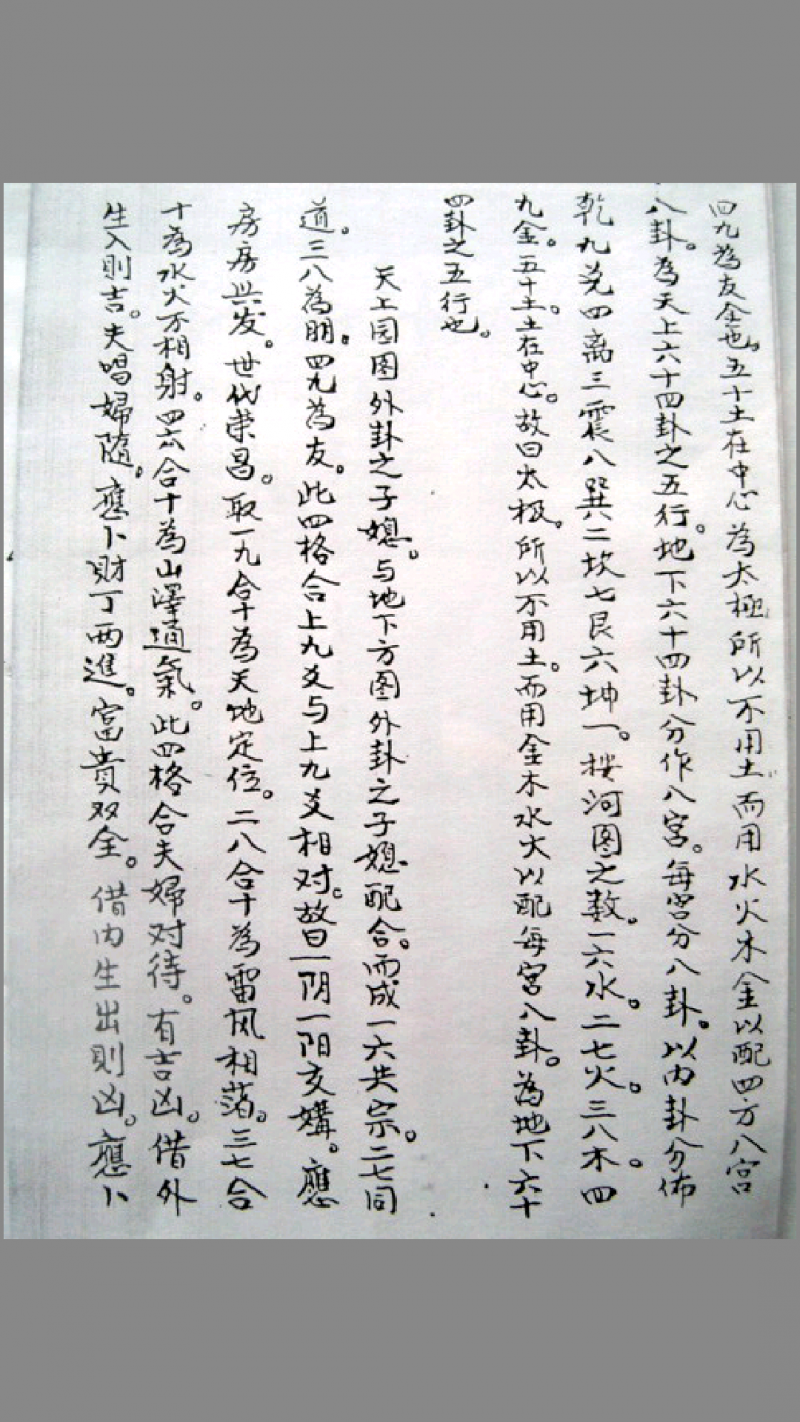 四九為友金也。五十土在中心為太極所以不用土。而用水火木金以配四方八宮
八卦。為天上六十四卦之五行。地下六十四卦分作八宮。每宮分八卦。以内卦分佈
乾九兑四离三震八巽二坎七艮六坤一。按河图之数。一六水。二七火。三八木。四
九金。五十土。土在中心。故曰太极。所以不用土。而用金木水火以配每宮八卦。為地下六十
四卦之五行也。
天上园图外卦之子媳。与地下方图外卦之子媳配合。而成一六共宗。二七同
道。三八為朋。四九為友。此四格合上九爻与上九爻相对。故曰一阴一阳交媾。應
房房兴发。世代荣昌。取一九合十為天地定位。二八合十為雷风相薄。三七合
十為水火不相射。四六合十為山澤通氣。此四格合夫婦对待。有吉凶。借外
生入則吉。夫唱婦隨。應卜財丁两進。富貴双全。借内生出則凶。應卜